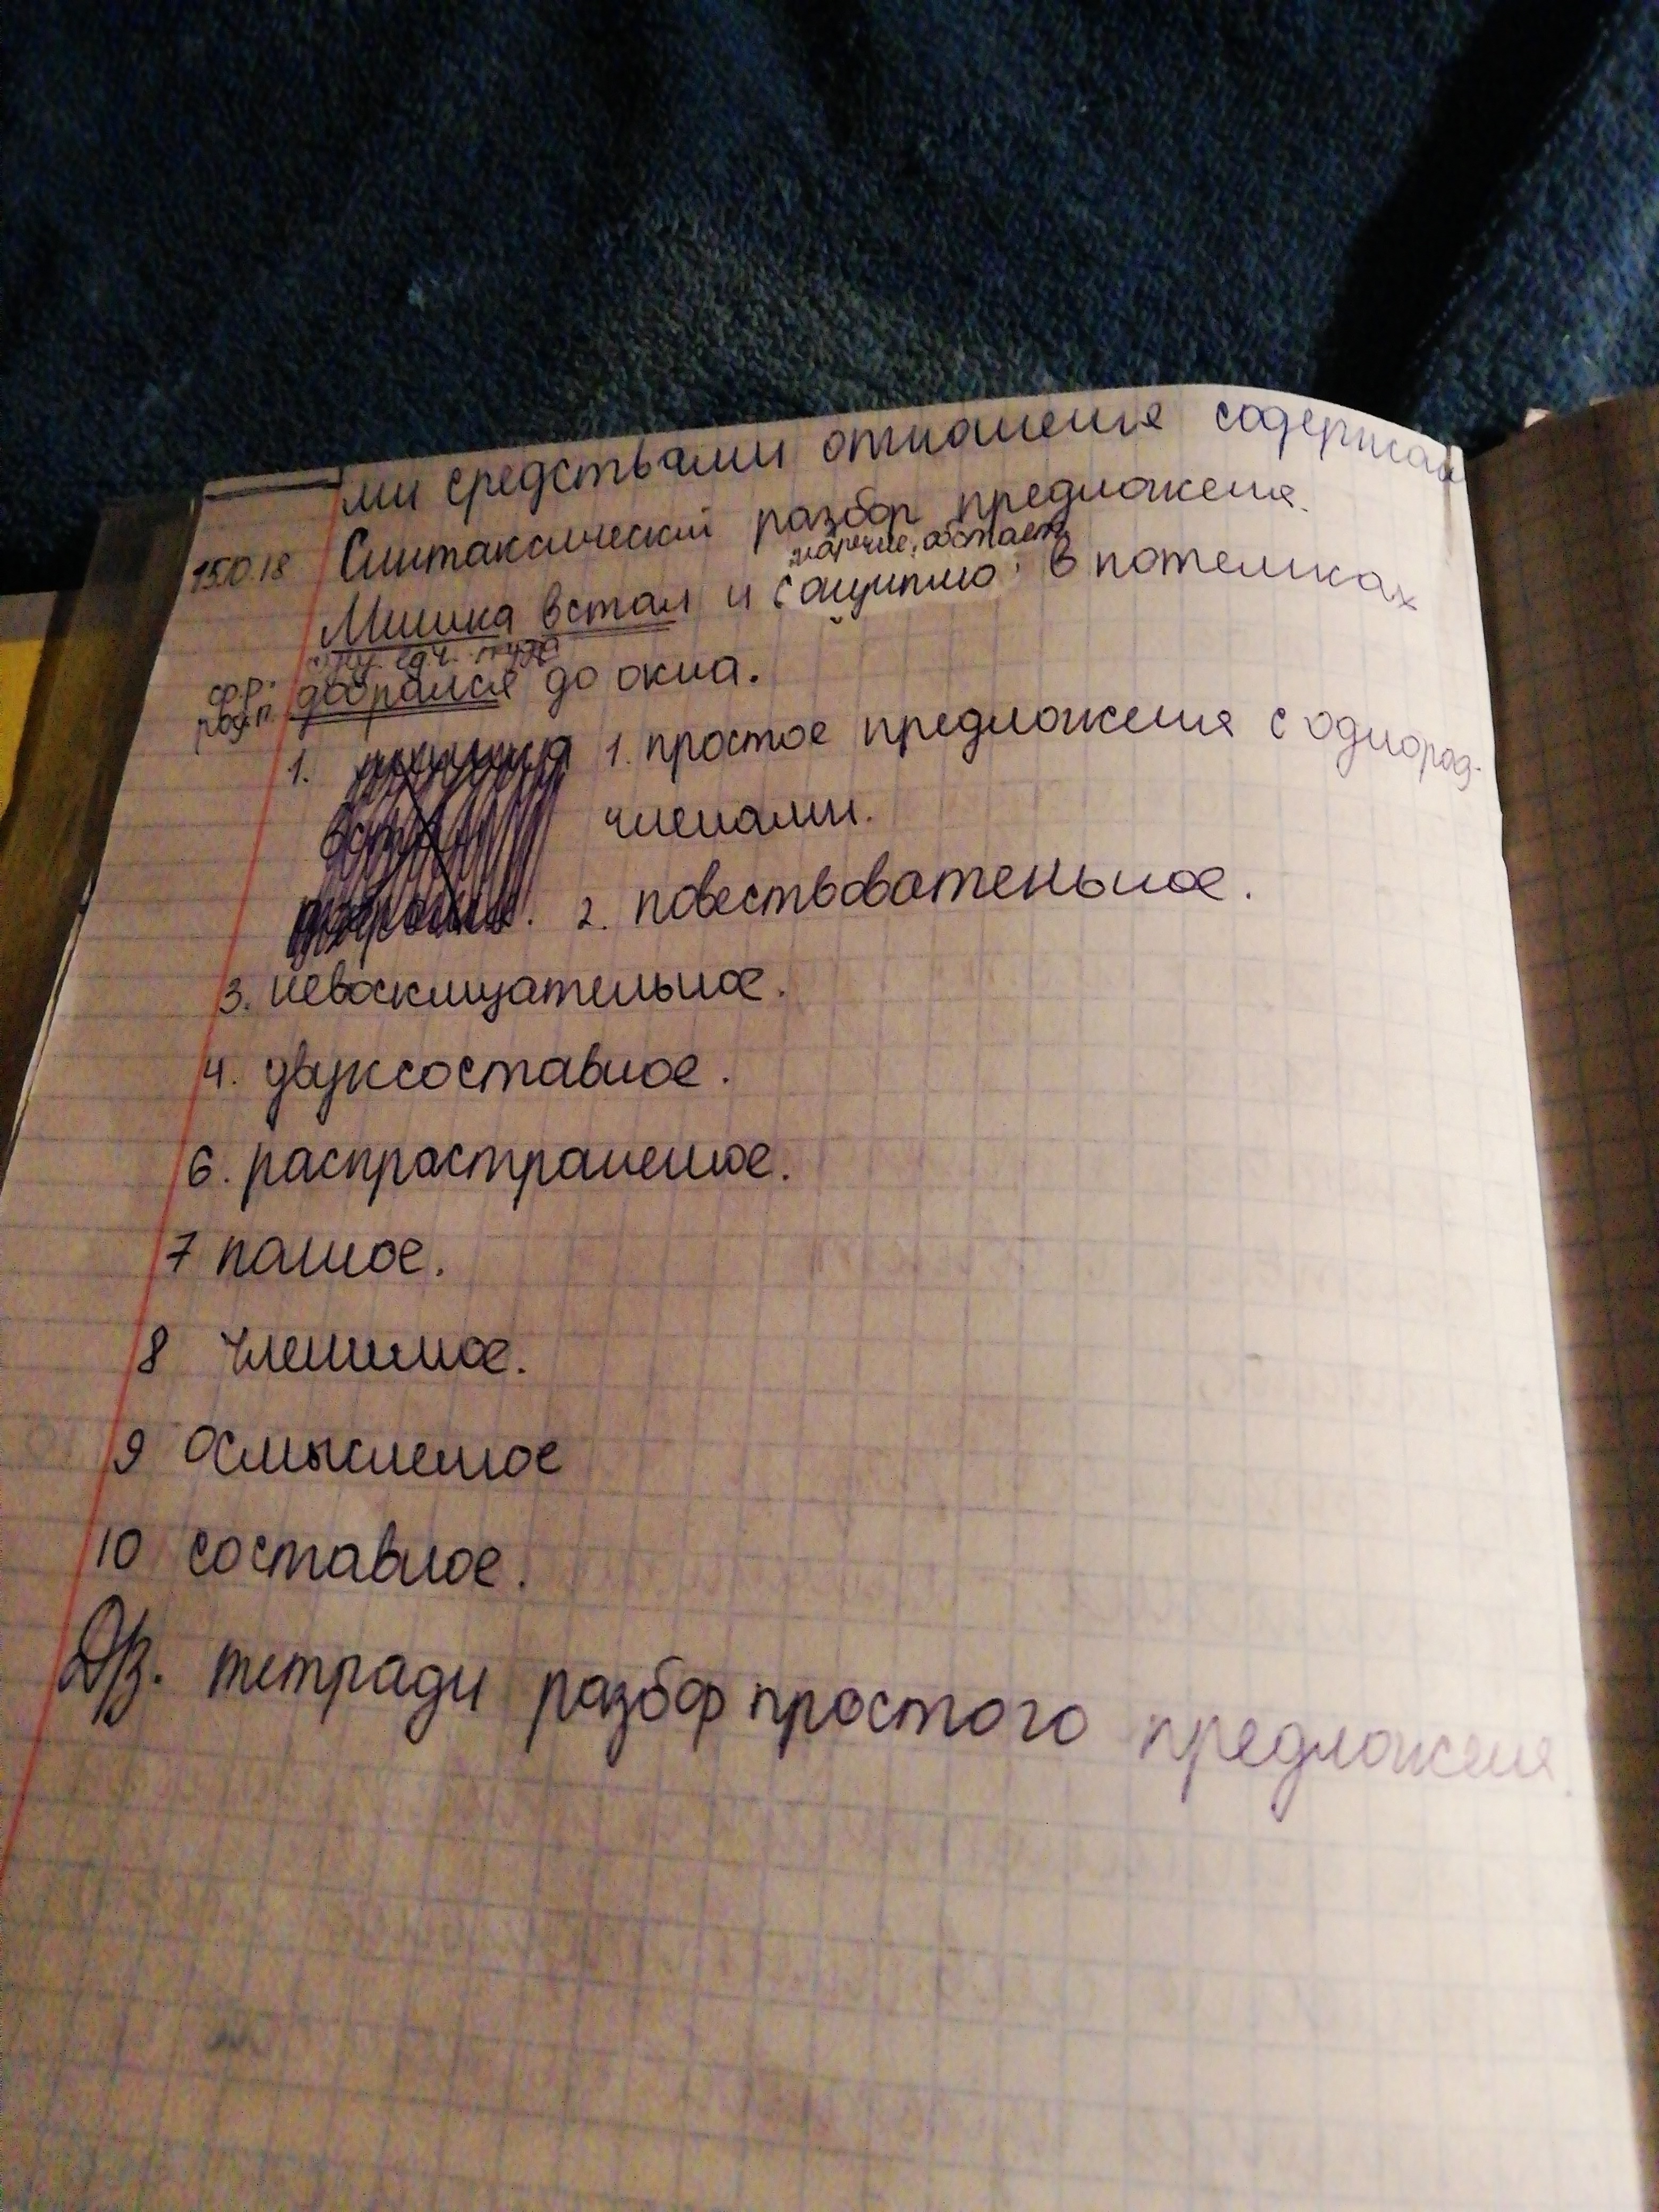 ми средствами отношения содержа
15.10.18 Синтаксический разбор предложения.
наречие, обстаят
Мишка встал и сащупто в потемках
сущ. ед.ч. муж
ф.р. добрался до окна.
1. 1. простое предложения с однород.
членами.
2. повествоватеньное.
3. невосклицательное.
4. двуксоставное.
6. распространеное.
7 полное.
8 членимое.
9 Осмысленое
10 составное.
Д/з. тетради разбор простого предложеня.